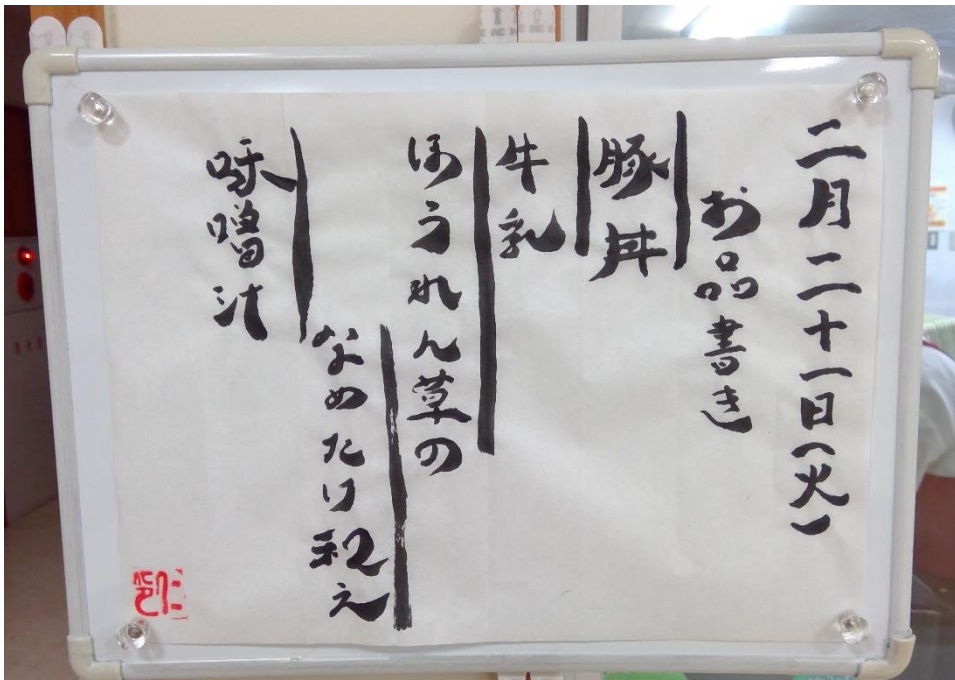 二月二十一日(火)
お品書き
豚丼
牛乳
ほうれん草の
なめたけ和え
味噌汁